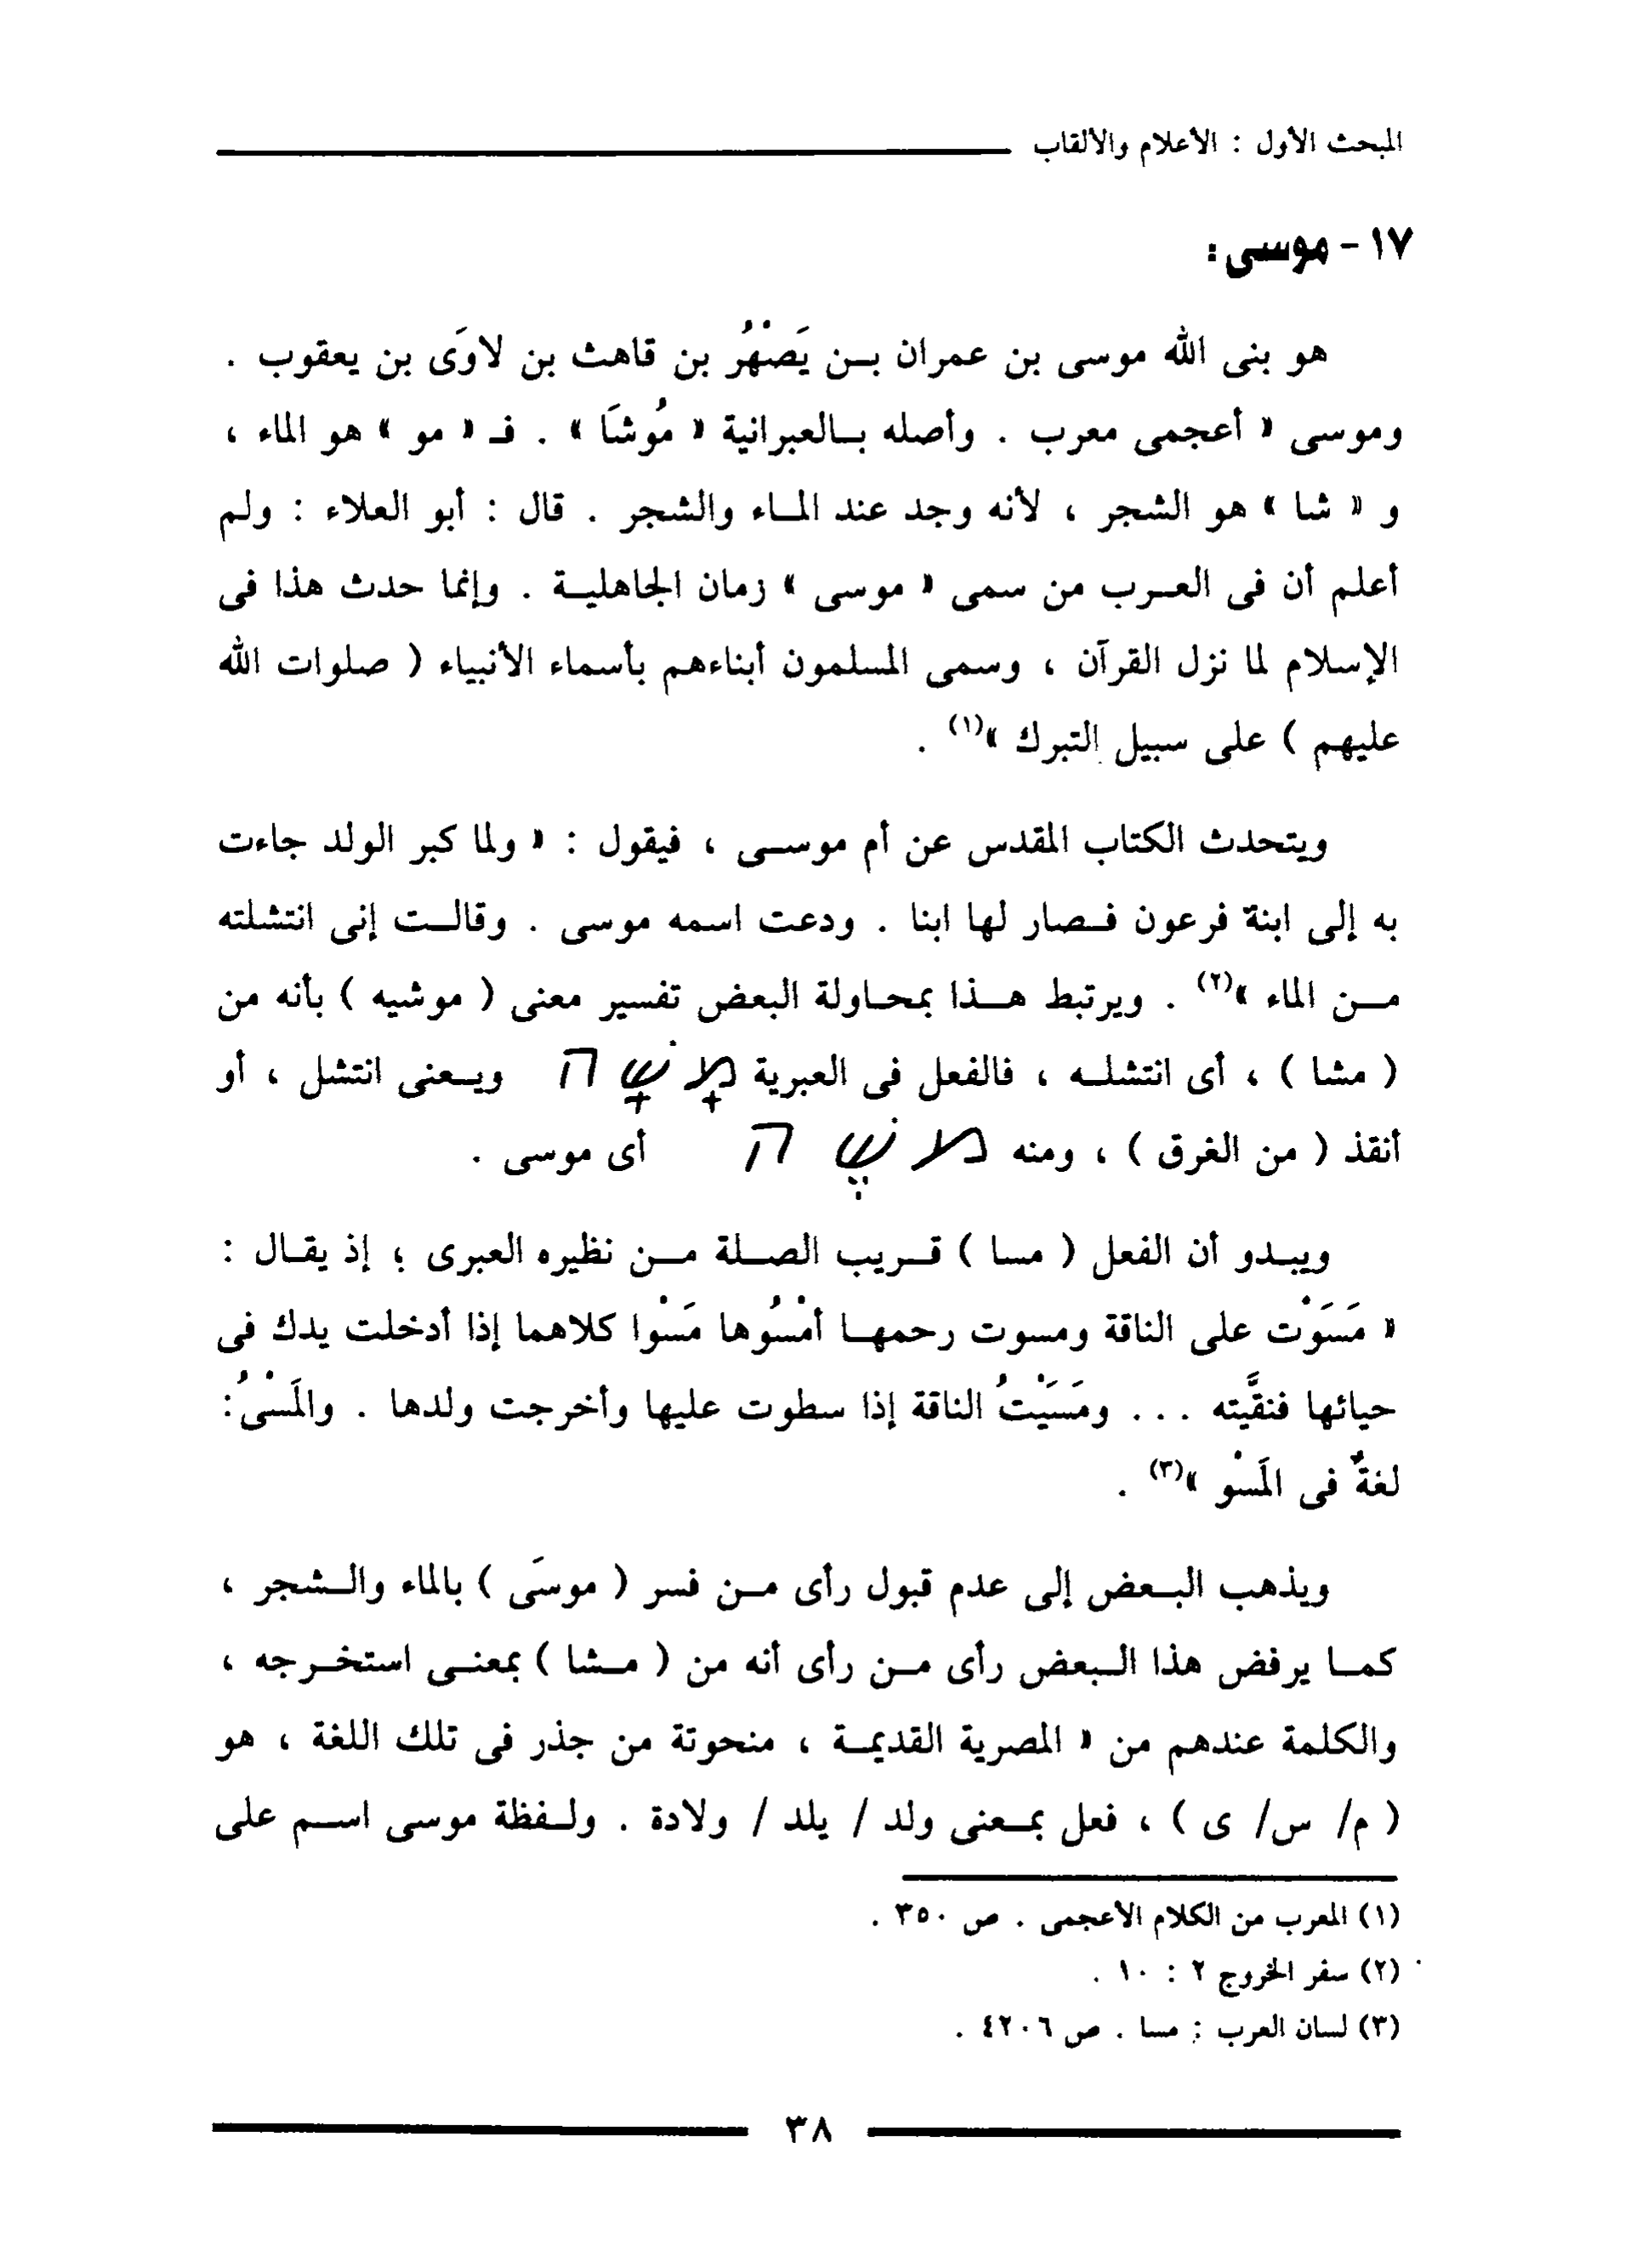 المبحث الأول : الأعلام والألقاب
١٧ - موسى :
هو بنى الله موسى بن عمران بـن يَصْهُر بن قاهث بن لاوَى بن يعقوب .
وموسى « أعجمى معرب . وأصله بـالعبرانية « مُوشَا » . فـ « مو » هو الماء ،
و « شا » هو الشجر ، لأنه وجد عند المـاء والشجر . قال : أبو العلاء : ولم
أعلم أن فى العـرب من سمى « موسى » زمان الجاهليـة . وإنما حدث هذا فى
الإسلام لما نزل القرآن ، وسمى المسلمون أبناءهم بأسماء الأنبياء ( صلوات الله
عليهم ) على سبيل التبرك »(١) .
ويتحدث الكتاب المقدس عن أم موسـى ، فيقول : « ولما كبر الولد جاءت
به إلى ابنة فرعون فـصار لها ابنا . ودعت اسمه موسى . وقالـت إنى انتشلته
مـن الماء »(٢) . ويرتبط هـذا بمحـاولة البعض تفسير معنى ( موشيه ) بأنه من
( مشا ) ، أى انتشلـه ، فالفعل فى العبرية מָשָׁה ويـعنى انتشل ، أو
أنقذ ( من الغرق ) ، ومنه מֹשֶׁה أى موسى .
ويبـدو أن الفعل ( مسا ) قـريب الصـلة مـن نظيره العبرى ؛ إذ يقـال :
« مَسَوْت على الناقة ومسوت رحمهـا أمْسُوها مَسْوا كلاهما إذا أدخلت يدك فى
حيائها فنقَّيته ... ومَسَيْتُ الناقة إذا سطوت عليها وأخرجت ولدها . والمَسْىُ :
لغةٌ فى المَسْو »(٣) .
ويذهب البـعض إلى عدم قبول رأى مـن فسر ( موسَى ) بالماء والـشجر ،
كمـا يرفض هذا الـبعض رأى مـن رأى أنه من ( مـشا ) بمعنـى استخـرجه ،
والكلمة عندهم من « المصرية القديمـة ، منحوتة من جذر فى تلك اللغة ، هو
( م/ س/ ى ) ، فعل بمـعنى ولد / يلد / ولادة . ولـفظة موسى اسـم على
(١) المعرب من الكلام الأعجمى . ص ٣٥٠ .
(٢) سفر الخروج ٢ : ١٠ .
(٣) لسان العرب : مسا . ص ٤٢٠٦ .
٣٨